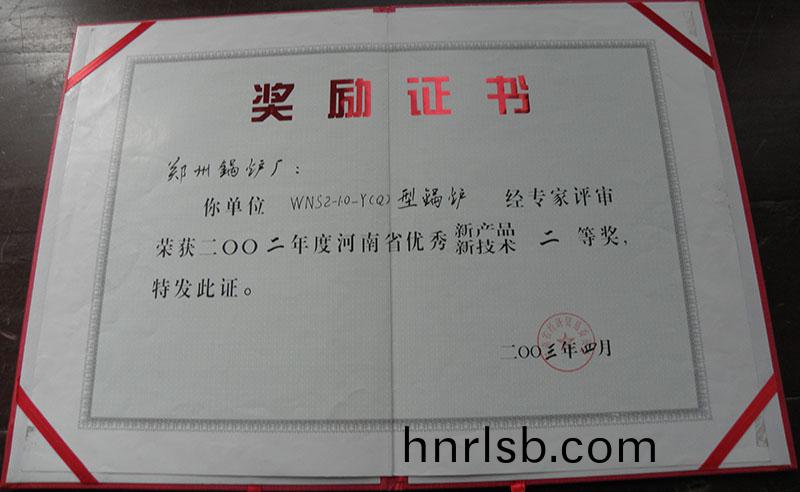 奖励证书
郑州锅炉厂：
你单位 WNS2-1.0-Y(Q)型锅炉 经专家评审
荣获二〇〇二年度河南省优秀新产品新技术 二 等奖，
特发此证。
二〇〇三年四月
hnrlsb.com